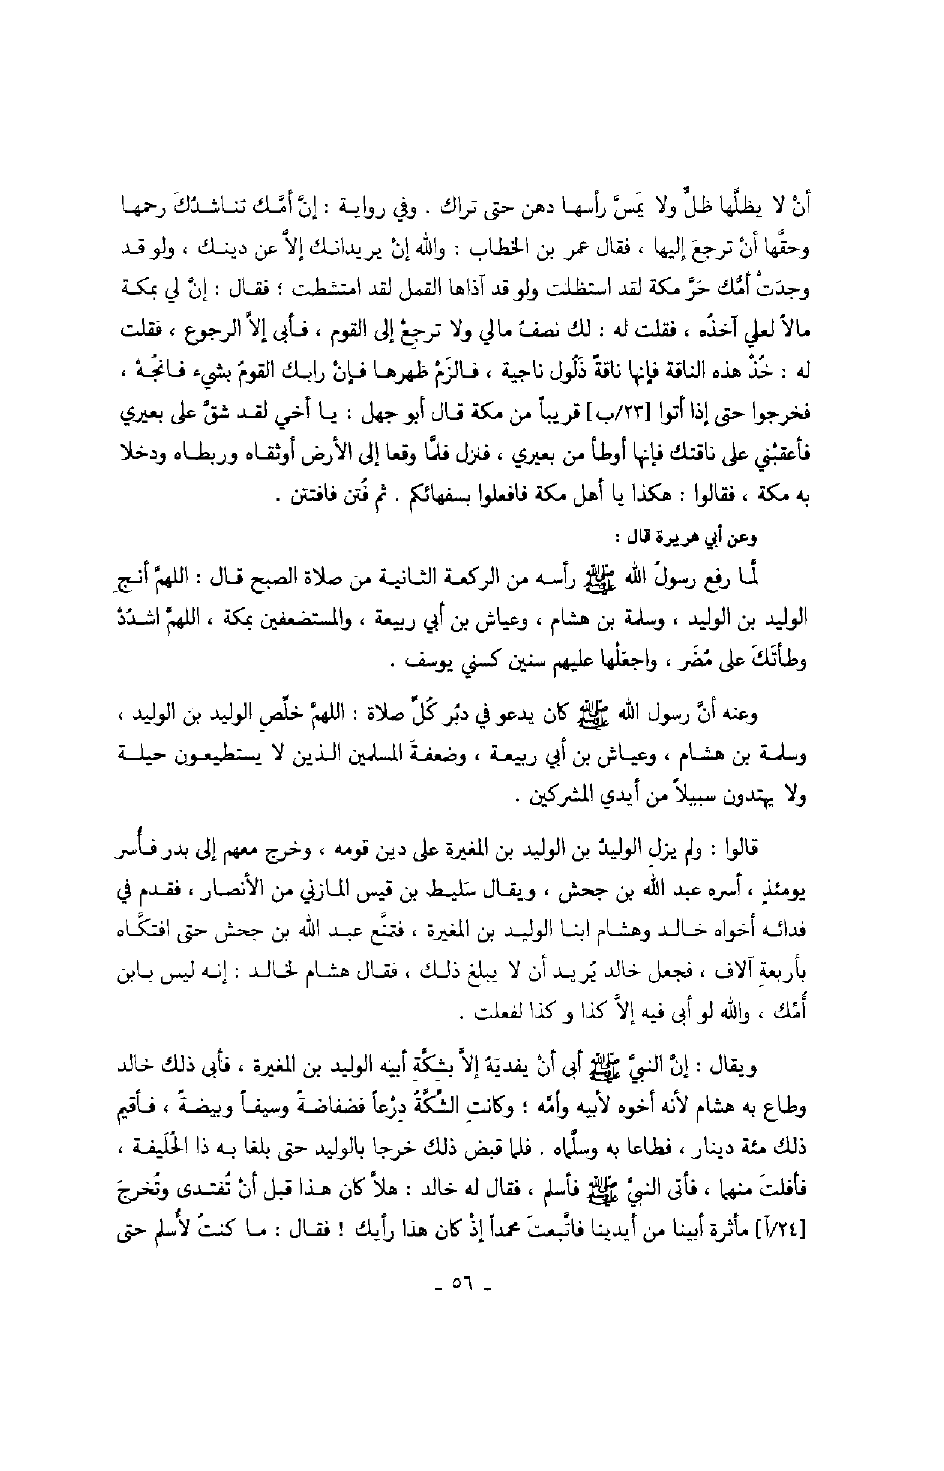 أنْ لا يظلَّها ظلٌّ ولا يَمَسَّ رأسها دهن حتى تراك . وفي رواية : إنَّ أمَّك تناشدُكَ رحمها
وحقَّها أنْ ترجعَ إليها ، فقال عمر بن الخطاب : والله إنْ يريدانك إلاَّ عن دينك ، ولو قد
وجدَتْ أمُّك حَرَّ مكة لقد استظلت ولو قد آذاها القمل لقد امتشطت ؛ فقال : إنَّ لي بمكة
مالاً لعلي آخذُه ، فقلت له : لك نصفُ مالي ولا ترجعْ إلى القوم ، فأبى إلاَّ الرجوع ، فقلت
له : خُذْ هذه الناقة فإنها ناقةٌ ذَلُول ناجية ، فالزَمْ ظهرها فإنْ رابك القومُ بشيء فانْجُهْ ،
فخرجوا حتى إذا أتوا [٢٣/ب] قريباً من مكة قال أبو جهل : يا أخي لقد شقَّ على بعيري
فأعقبْني على ناقتك فإنها أوطأ من بعيري ، فنزل فلمَّا وقعا إلى الأرض أوثقاه وربطاه ودخلا
به مكة ، فقالوا : هكذا يا أهل مكة فافعلوا بسفهائكم . ثم فُتن فافتتن .
وعن أبي هريرة قال :
لمَّا رفع رسولُ الله ﷺ رأسه من الركعة الثانية من صلاة الصبح قال : اللهمَّ أنجِ
الوليد بن الوليد ، وسلمة بن هشام ، وعياش بن أبي ربيعة ، والمستضعفين بمكة ، اللهمَّ اشدُدْ
وطأتَكَ على مُضَر ، واجعَلْها عليهم سنين كسني يوسف .
وعنه أنَّ رسول الله ﷺ كان يدعو في دبُر كُلِّ صلاة : اللهمَّ خلِّصِ الوليد بن الوليد ،
وسلمة بن هشام ، وعياش بن أبي ربيعة ، وضعفةَ المسلمين الذين لا يستطيعون حيلة
ولا يهتدون سبيلاً من أيدي المشركين .
قالوا : ولم يزلِ الوليدُ بن الوليد بن المغيرة على دين قومه ، وخرج معهم إلى بدر فأُسر
يومئذٍ ، أسره عبد الله بن جحش ، ويقال سَليط بن قيس المازني من الأنصار ، فقدم في
فدائه أخواه خالد وهشام ابنا الوليد بن المغيرة ، فتمنَّع عبد الله بن جحش حتى افتكَّاه
بأربعةِ آلاف ، فجعل خالد يُريد أن لا يبلغ ذلك ، فقال هشام لخالد : إنه ليس بابن
أُمِّك ، والله لو أبى فيه إلاَّ كذا و كذا لفعلت .
ويقال : إنَّ النبيَّ ﷺ أبى أنْ يفديَهُ إلاَّ بشكَّةِ أبيه الوليد بن المغيرة ، فأبى ذلك خالد
وطاع به هشام لأنه أخوه لأبيه وأمّه ؛ وكانتِ الشِّكَّةُ دِرْعاً فضفاضةً وسيفاً وبيضةً ، فأقيم
ذلك مئة دينار ، فطاعا به وسلَّماه . فلما قبض ذلك خرجا بالوليد حتى بلغا به ذا الحُلَيفة ،
فأفلتَ منهما ، فأتى النبيَّ ﷺ فأسلم ، فقال له خالد : هلاَّ كان هذا قبل أنْ تُفتدى وتُخرجَ
[٢٤/آ] مأثرة أبينا من أيدينا فاتَّبعتَ محمداً إذْ كان هذا رأيك ! فقال : ما كنتُ لأُسلم حتى
ـ ٥٦ ـ